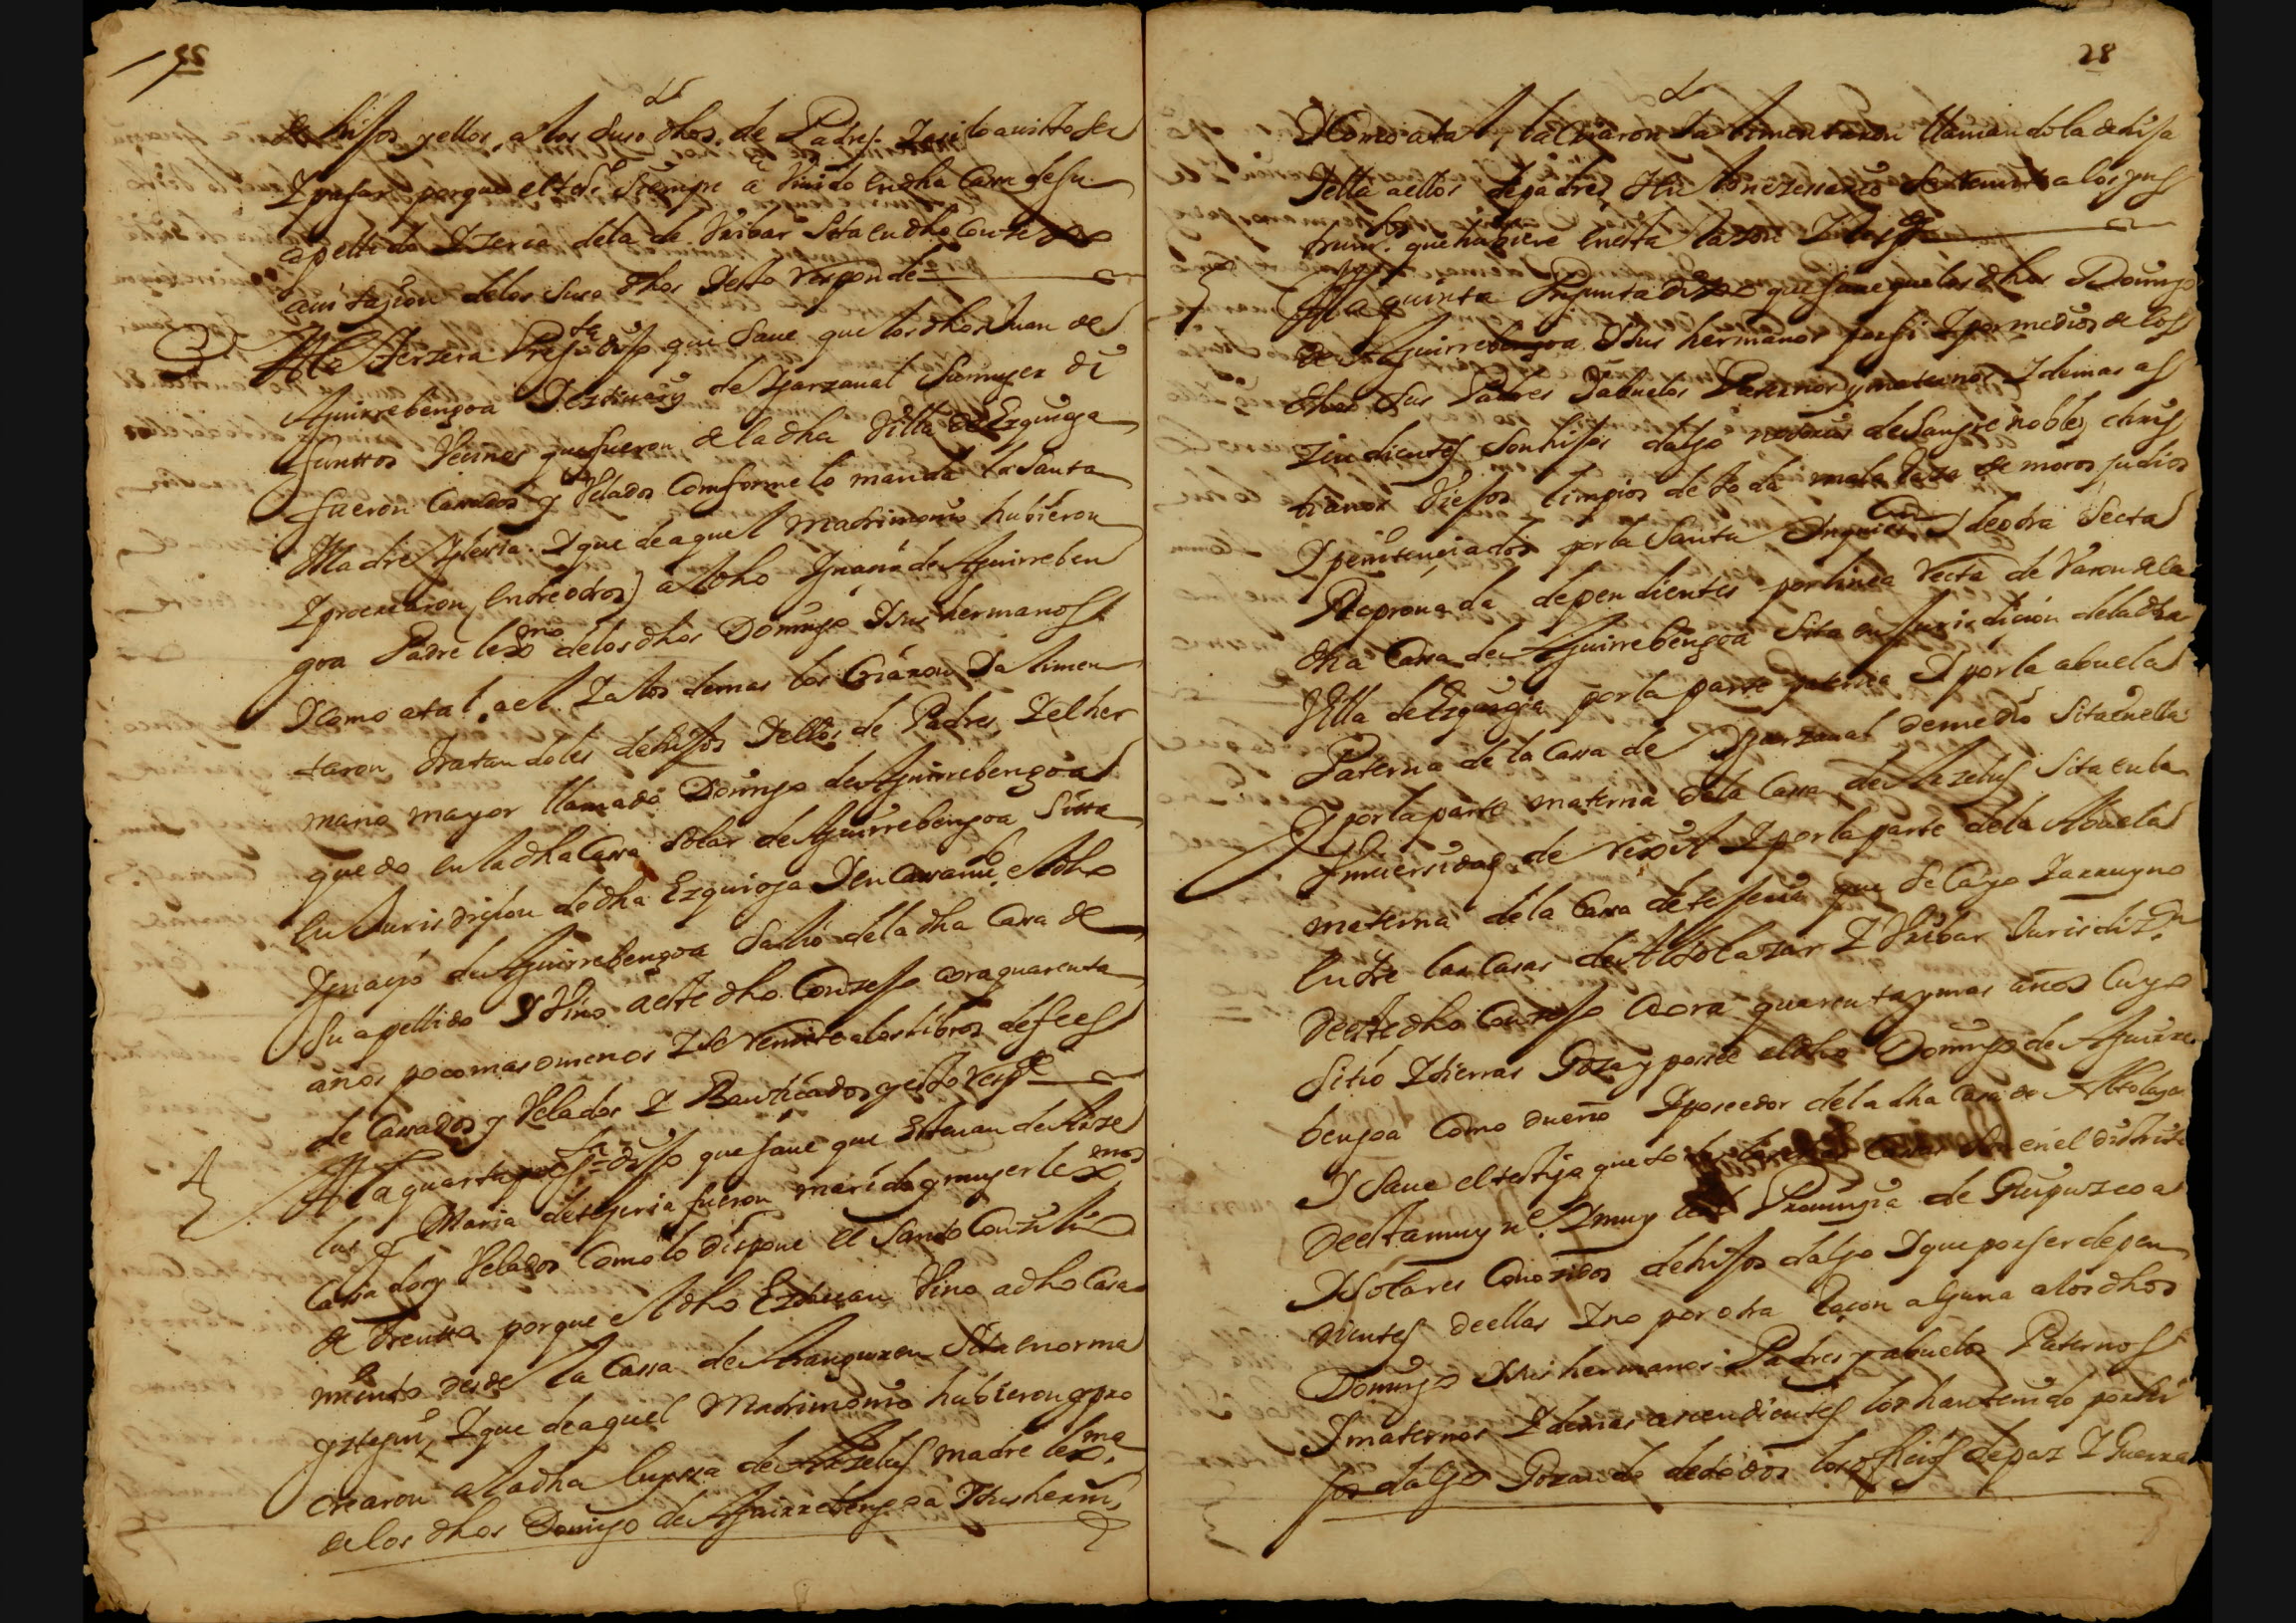 de hijos y ellos a los suso dhos de Padres. Y assi lo a visto ser
Y pasar porque el tsº siempre a viuido en dha Cassa de su
apellido Y zerca de la de Vribar Sita en dho Conzexo
auitazion de los suso dhos Y esto responde
3 A la terzera Pregta dijo que saue que los dhos Juan de
Aguirrebengoa Y de Yparzaual su muger di
funttos Vecinos que fueron de la dha Villa de Ezquioga
fueron Cassados y Velados Comforme lo manda la Santa
Madre Yglesia. Y que de aquel Madrimonio hubieron
Y procrearon (entre otros) al dho Ygnaçio de Aguirreben
goa Padre lexmo de los dhos Domingo Y sus hermanos
Y como a tal, a el Y a los demas los Criaron Y alimen
taron tratandoles de hijos Y ellos de Padres, Y el her
mano mayor llamado Domingo de Aguirrebengoa
quedo en la dha Cassa Solar de Aguirrebengoa Sitta
en Jurisdiçion de dha Ezquioga Y en Cassamto el dho
Ygnaçio de Aguirrebengoa Salio de la dha Cassa de
Su apellido Y Vino a este dho Conzejo aora quarenta
años poco mas o menos Y se remite a los libros de fees
de Cassados y Velados Y Bautiçados y esto respde
4 A la quarta pregta dijo que saue que Esteuan de Aze
lus Y Maria de tejeria fueron marido y muger lexmos
Cassados y Velados Como lo dispone el Santo Conzilio
de trentto, porque el dho Esteuan Vino a dho Casa
miento desde la Cassa de Aranguren Sita en orma
yztegui, Y que de aquel Madrimonio hubieron y pro
crearon a la dha Luysa de Azelus madre lexma
de los dhos Domingo de Aguirrebengoa Y sus hermos
28
Y Como a tal, la Criaron Y alimentaron llamandola de hija
Y ella a ellos de padres, Y en lo nezesario se remite a los yns
trumtos que hubiere en esta razon Y respde
5 A la quinta Pregunta dijo que saue que los dhos Domingo
de Aguirrebengoa Y sus hermanos por si Y por medios de los
dhos Sus Padres Y abuelos Paternos y maternos Y demas as
zendientes Son hijos dalgo notorios de Sangre nobles chris
tianos Viejos limpios de toda mala Raza de moros judios
Y penitenciados por la Santa Ynquision Y de otra Secta
Reprouada dependientes por linea recta de Varon de la
dha Cassa de Aguirrebengoa Sita en Jurisdiçion de la dha
Villa de Ezquioga por la parte paterna Y por la abuela
Paterna de la Cassa de Yparzaual de medio Sita en ella
Y por la parte materna de la Cassa de Azelus Sita en la
Vniuersidad de rexil Y por la parte de la Abuela
materna de la Cassa de tejeria que se Cayo Y arruyno
entre las Casas de Altolazar Y Vribar Jurisdizon
de este dho Conzejo aora quarenta y mas años Cuyo
Sitio Y tierras Goza y possee el dho Domingo de Aguirre
bengoa Como dueño Y poseedor de la dha Casa de Altolaza
Y Saue el testigo que todas las dhas Casas Son en el distrito
de esta muy ne Y muy leal Prouinçia de Guipuzcoa
Y Solares Conozidos de hijos dalgo Y que por ser depen
dientes de ellas Y no por otra Raçon alguna a los dhos
Domingo Y sus hermanos Padres y abuelos Paternos
Y maternos Y demas ascendientes los han tenido por hi
jos dalgo Gozando de todos los ofiçios de paz Y Guerra